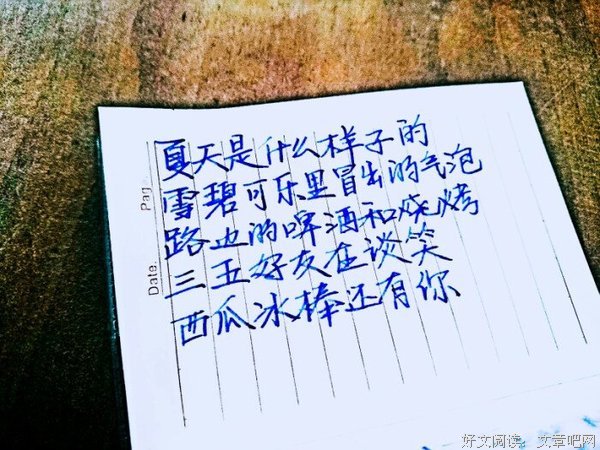 夏天是什么样子的
雪碧可乐里冒出的气泡
路边的啤酒和烧烤
三五好友在谈笑
西瓜冰棒还有你
Pag
Date.
好文阅读：文章吧网